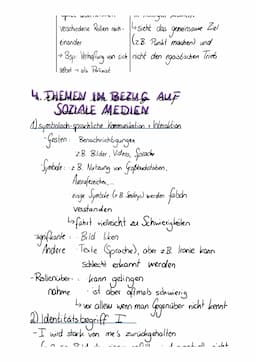 verschiedene Rollen
einander
→ Bsp: Verhaftung von sich
selbst → als Polizist
→ sieht das gemeinsame Ziel
(z.B. Punkt machen) und
nicht den egoistischen Trieb
4. THEMEN IM BEZUG AUF
SOZIALE MEDIEN
1) symbolisch-sprachliche Kommunikation + Interaktion
- Gesten: Benachrichtigungen
z.B. Bilder, Videos, Sprache
- Symbole: z.B. Nutzung von Großbuchstaben,
Ausrufezeichen,...
einige Symbole (z.B. Smileys) werden falsch
verstanden
↳ führt vielleicht zu Schwierigkeiten
- signifikante: Bild liken
Andere Texte (Sprache), aber z.B. Ironie kann
schlecht erkannt werden
- Rollenüber- : kann gelingen
nahme - ist aber oftmals schwierig
↳ vor allem wenn man Gegenüber nicht kennt
2) Identitätsbegriff I
- I wird stark von me's zurückgehalten